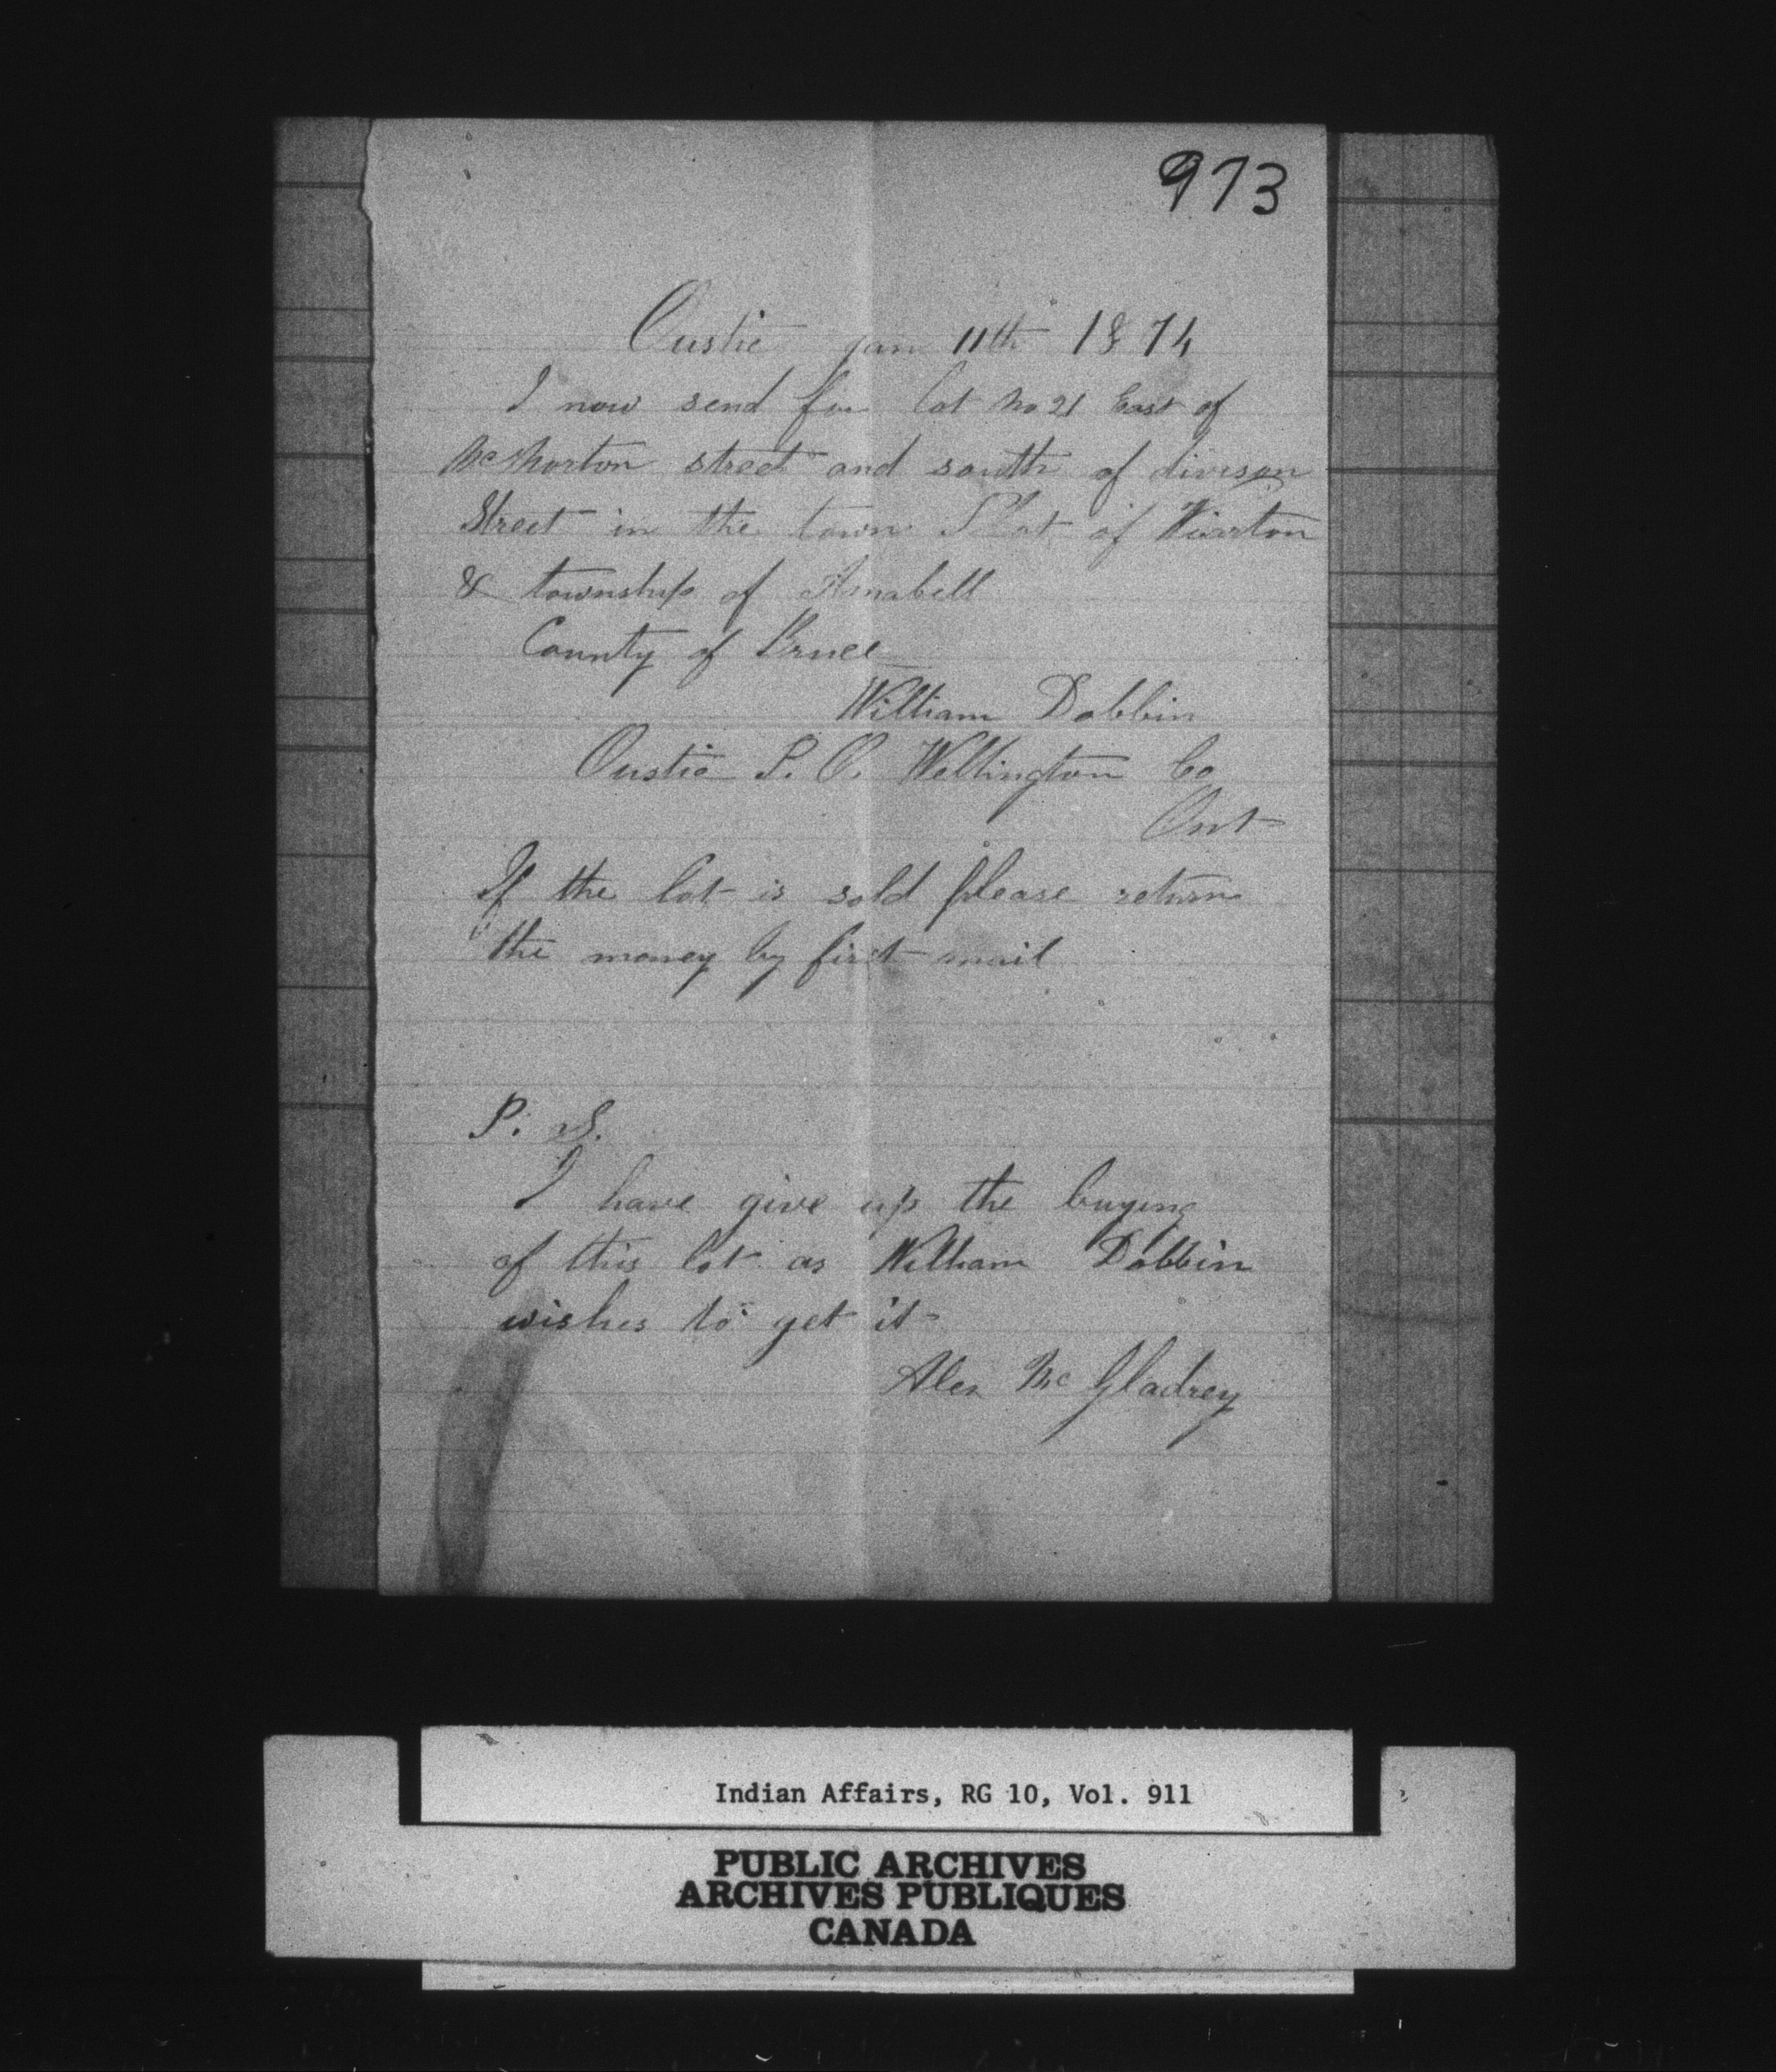 973
Oustic jan 11th 1874
I now send for lot No 21 East of
McNorton street and south of divison
Street in the town Plot of Wiarton
& township of Amabell
County of Bruce
William Dobbin
Oustic P. O. Wellington Co
Ont
If the lot is sold please return
the money by first mail
P. S.
I have give up the buying
of this lot as William Dobbin
wishes to get it
Alex Mc Gladrey
Indian Affairs, RG 10, Vol. 911
PUBLIC ARCHIVES
ARCHIVES PUBLIQUES
CANADA